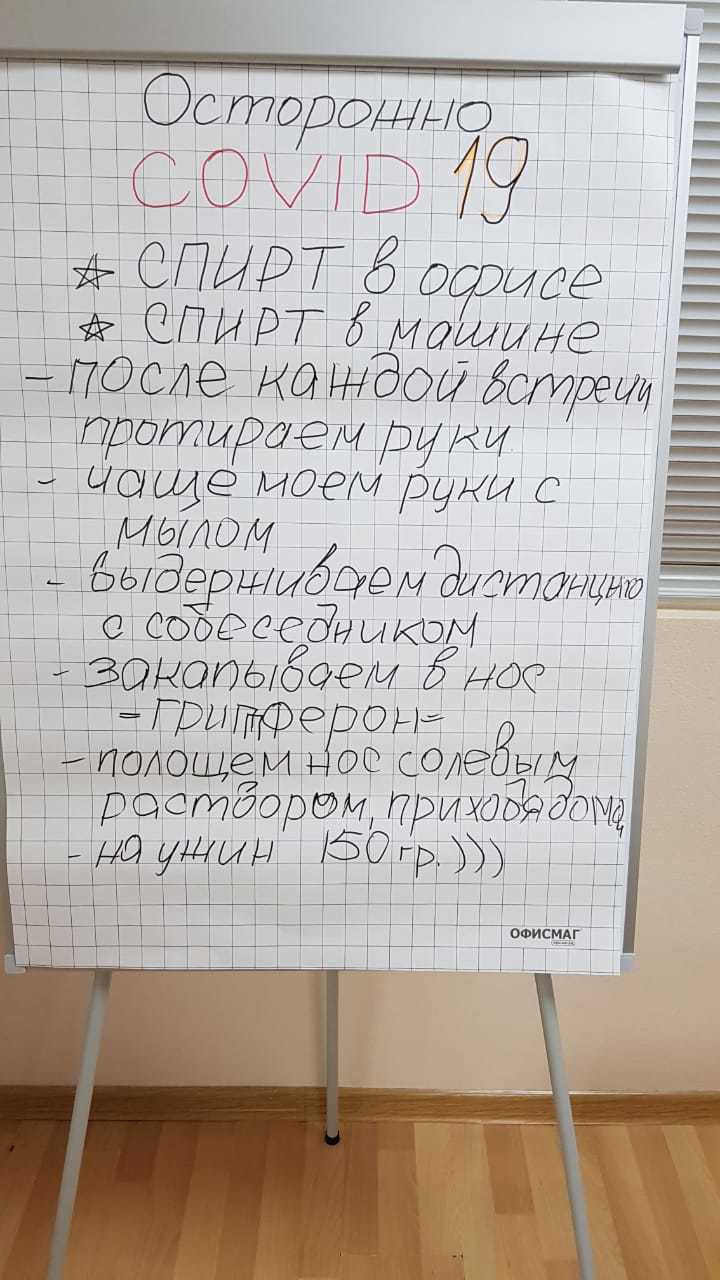 Осторожно
COVID 19
☆ СПИРТ в офисе
☆ СПИРТ в машине
- после каждой встречи
протираем руки
- чаще моем руки с
мылом
- выдерживаем дистанцию
с собеседником
- закапываем в нос
= ГРИППФЕРОН =
- полощем нос солевым
раствором, приходя домой
- на ужин 150 гр.)))
ОФИСМАГ